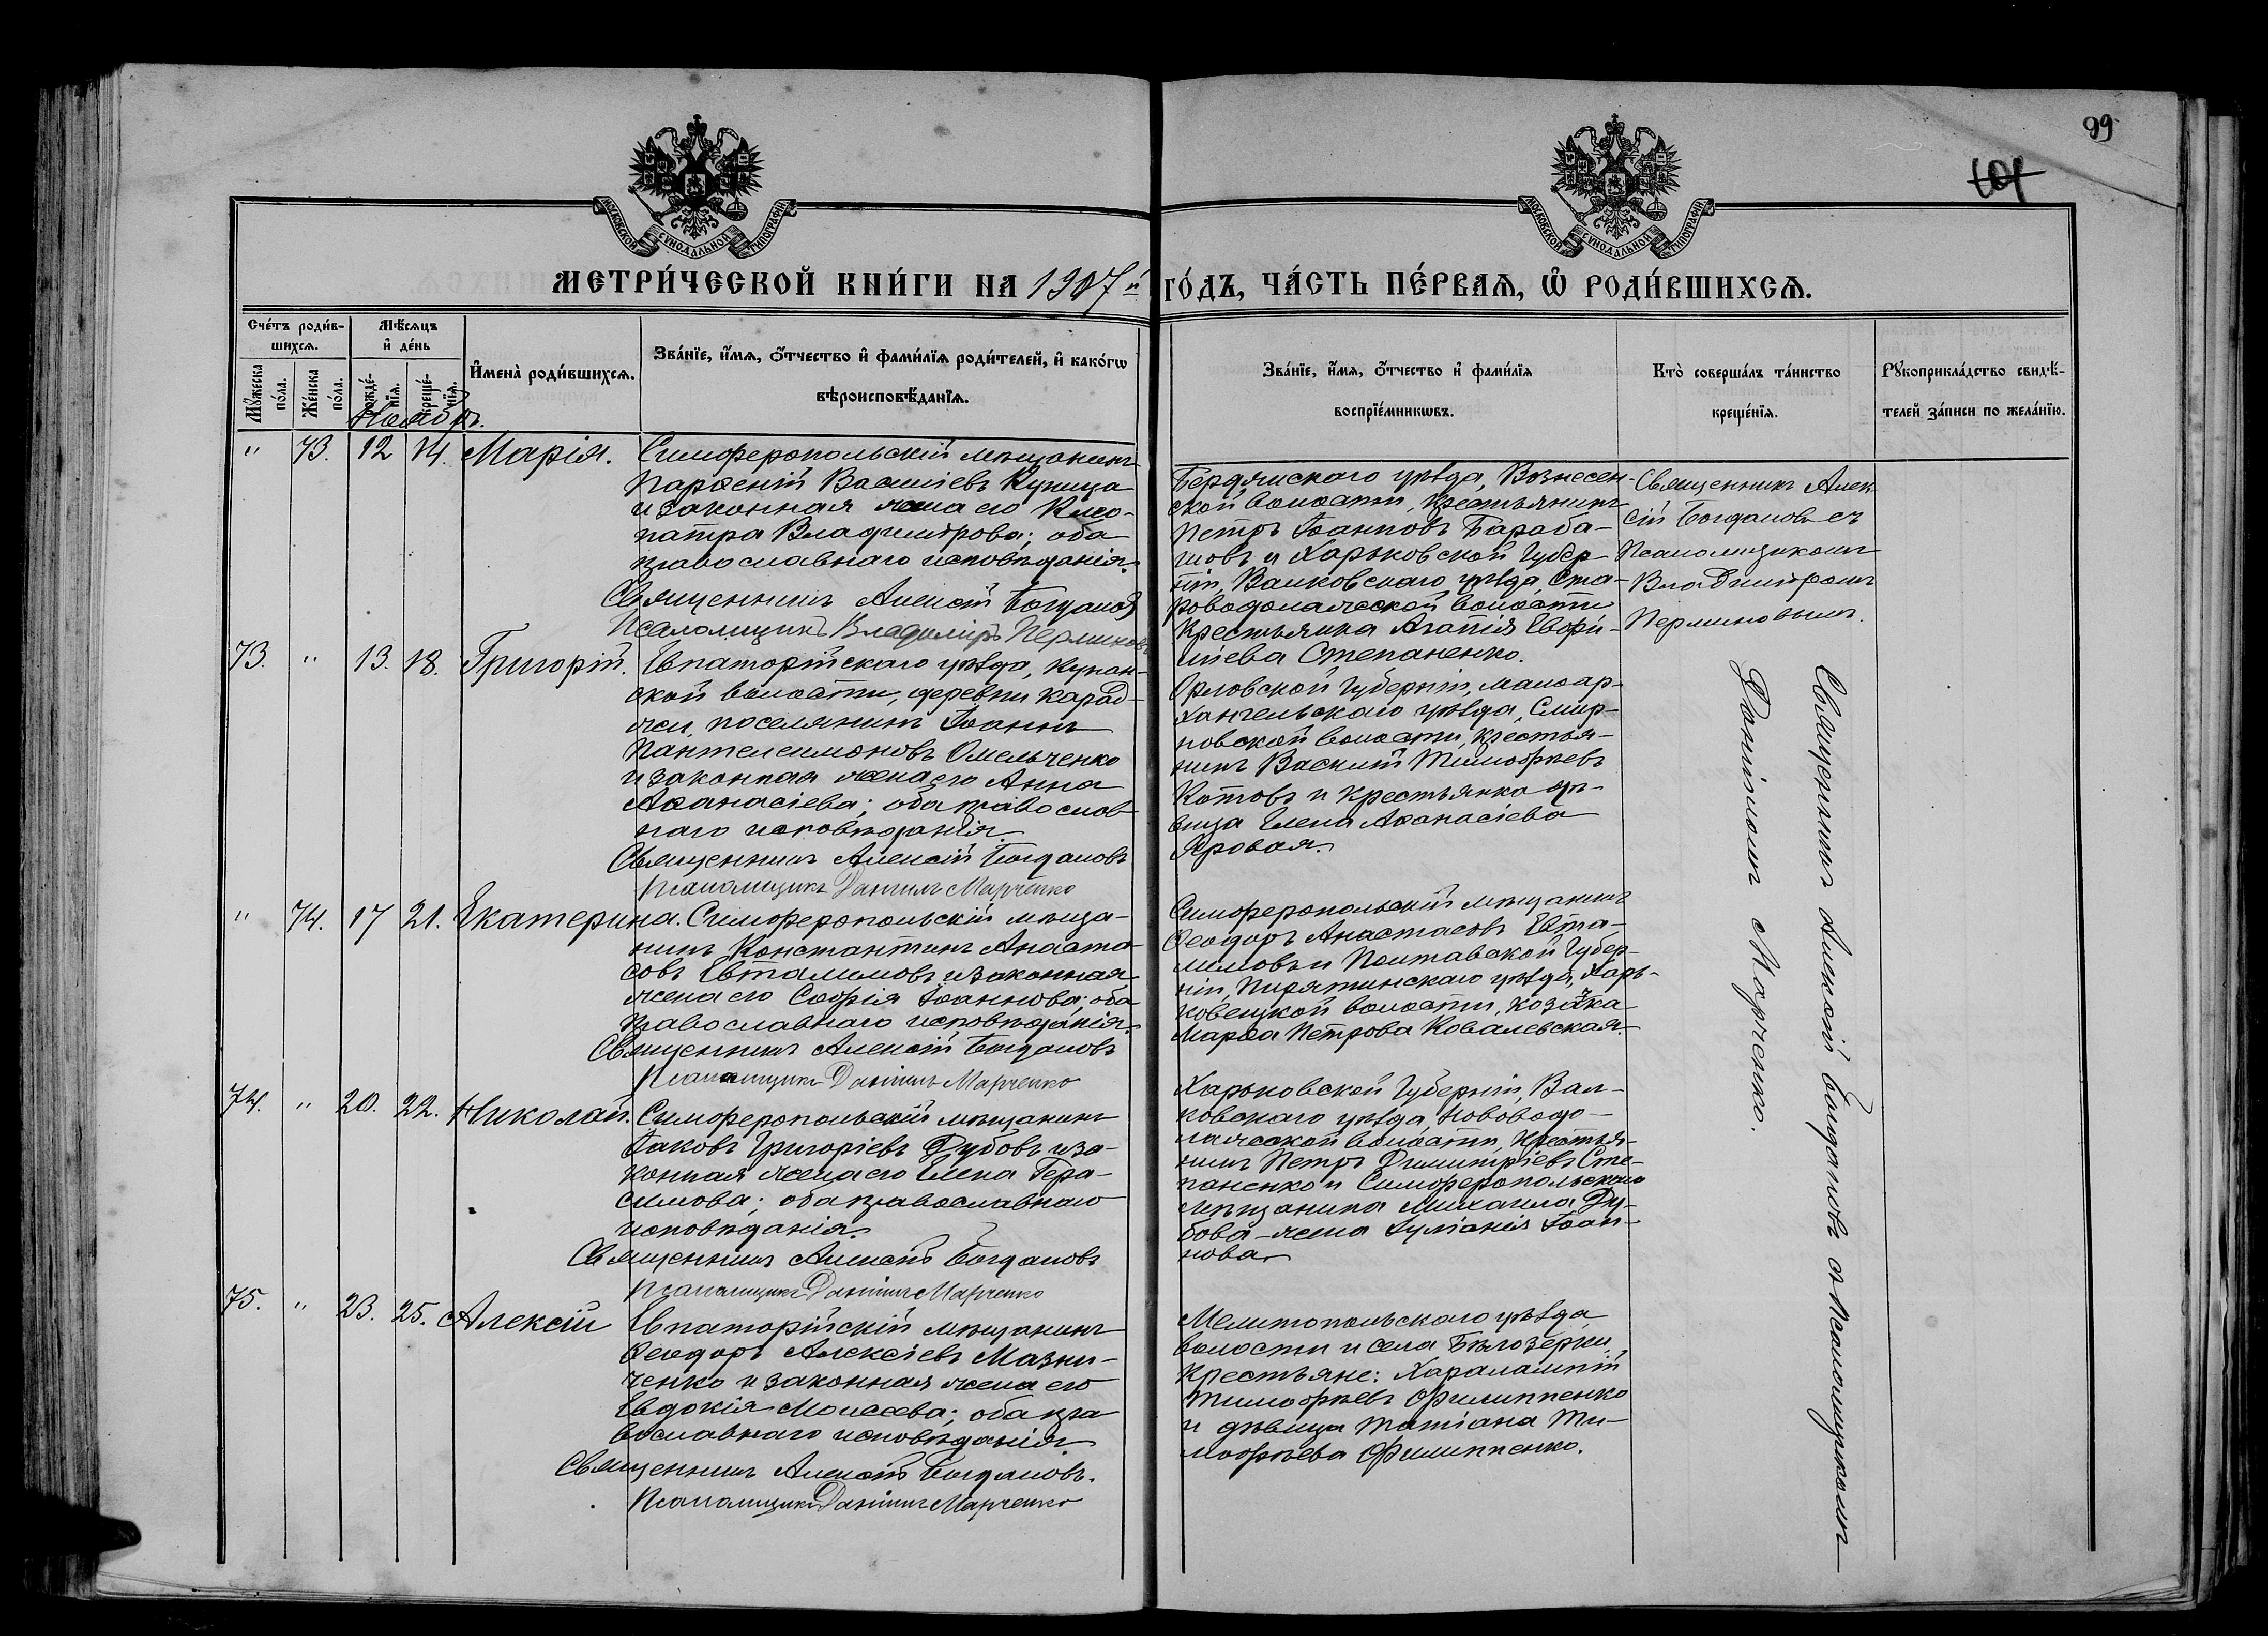 99
101
МОСКОВСКОЙ СѴНОДАЛЬНОЙ ТИПОГРАФІИ
МОСКОВСКОЙ СѴНОДАЛЬНОЙ ТИПОГРАФІИ
МЕТРИ́ЧЕСКОЙ КНИ́ГИ НА 1907й ГО́ДЪ, ЧА́СТЬ ПЕ́РВАѦ, Ѡ҆ РОДИ́ВШИХСѦ.
Сче́тъ роди́в-
шихсѧ.
Мѣ́сѧцъ
и҆ де́нь
Мꙋ́жеска
по́ла.
Же́нска
по́ла.
рожде́-
нїѧ.
креще́-
нїѧ.
И҆мена̀ роди́вшихсѧ.
Зва́нїе, и҆́мѧ, ѻ҆́тчество и҆ фами́лїѧ роди́телей, и҆ како́гѡ
вѣроисповѣ́данїѧ.
Зва́нїе, и҆́мѧ, ѻ҆́тчество и҆ фами́лїѧ
воспрїе́мникѡвъ.
Кто̀ соверша́лъ та́инство
креще́нїѧ.
Рꙋкоприкла́дство свидѣ́-
телей за́писи по жела́нїю.
Ноябрь.
" 73. 12 14. Марія. Симферопольскій мѣщанинъ
Парѳеній Василіевъ Купица
и законная жена его Клео-
патра Владимірова; оба
православнаго исповѣданія.
Священникъ Алексій Богдановъ
Псаломщикъ Владиміръ Перминовъ
Бердянскаго уѣзда, Вознесен-
ской волости, крестьянинъ
Петръ Іоанновъ Бараба-
шовъ и Харьковской Губер-
ніи, Валковскаго уѣзда, Ста-
роводолажской волости
крестьянка Агапія Еври-
піева Степаненко.
Священникъ Алек-
сій Богдановъ съ
Псаломщикомъ
Владиміромъ
Перминовымъ.
73. " 13. 18. Григорій. Евпаторійскаго уѣзда, Курман-
ской волости, деревни Карад-
жи, поселянинъ Іоаннъ
Пантелеимоновъ Омельченко
и законная жена его Анна
Аѳанасіева; оба православ-
наго исповѣданія.
Священникъ Алексій Богдановъ
Псаломщикъ Даніилъ Марченко
Орловской Губерніи, Малоар-
хангельскаго уѣзда, Смир-
новской волости, крестья-
нинъ Василій Тимоѳеевъ
Котовъ и крестьянка дѣ-
вица Елена Аѳанасіева
Яровая.
Священникъ Алексій Богдановъ съ Псаломщикомъ
Даніиломъ Марченко.
" 74. 17 21. Екатерина. Симферопольскій мѣща-
нинъ Константинъ Анаста-
совъ Евталимовъ и законная
жена его Софія Іоаннова; оба
православнаго исповѣданія.
Священникъ Алексій Богдановъ
Псаломщикъ Даніилъ Марченко
Симферопольскій мѣщанинъ
Ѳеодоръ Анастасовъ Евта-
лимовъ и Полтавской Губер-
ніи, Пирятинскаго уѣзда, Харь-
ковецкой волости, козачка
Марѳа Петрова Ковалевская.
74. " 20. 22. Николай. Симферопольскій мѣщанинъ
Іаковъ Григоріевъ Дубовъ и за-
конная жена его Елена Гера-
симова; оба православнаго
исповѣданія.
Священникъ Алексій Богдановъ
Псаломщикъ Даніилъ Марченко
Харьковской Губерніи, Вал-
ковскаго уѣзда, Нововодо-
лажской волости, крестья-
нинъ Петръ Димитріевъ Сте-
паненко и Симферопольскаго
мѣщанина Михаила Ду-
бова – жена Іуліанія Іоан-
нова.
75. " 23. 25. Алексій Евпаторійскій мѣщанинъ
Ѳеодоръ Алексіевъ Мазни-
ченко и законная жена его
Евдокія Моисеева; оба пра-
вославнаго исповѣданія.
Священникъ Алексій Богдановъ.
Псаломщикъ Даніилъ Марченко
Мелитопольскаго уѣзда,
волости и села Бѣлозерки,
крестьяне: Харалампій
Тимоѳеевъ Филиппенко
и дѣвица Татіана Ти-
моѳеева Филиппенко.